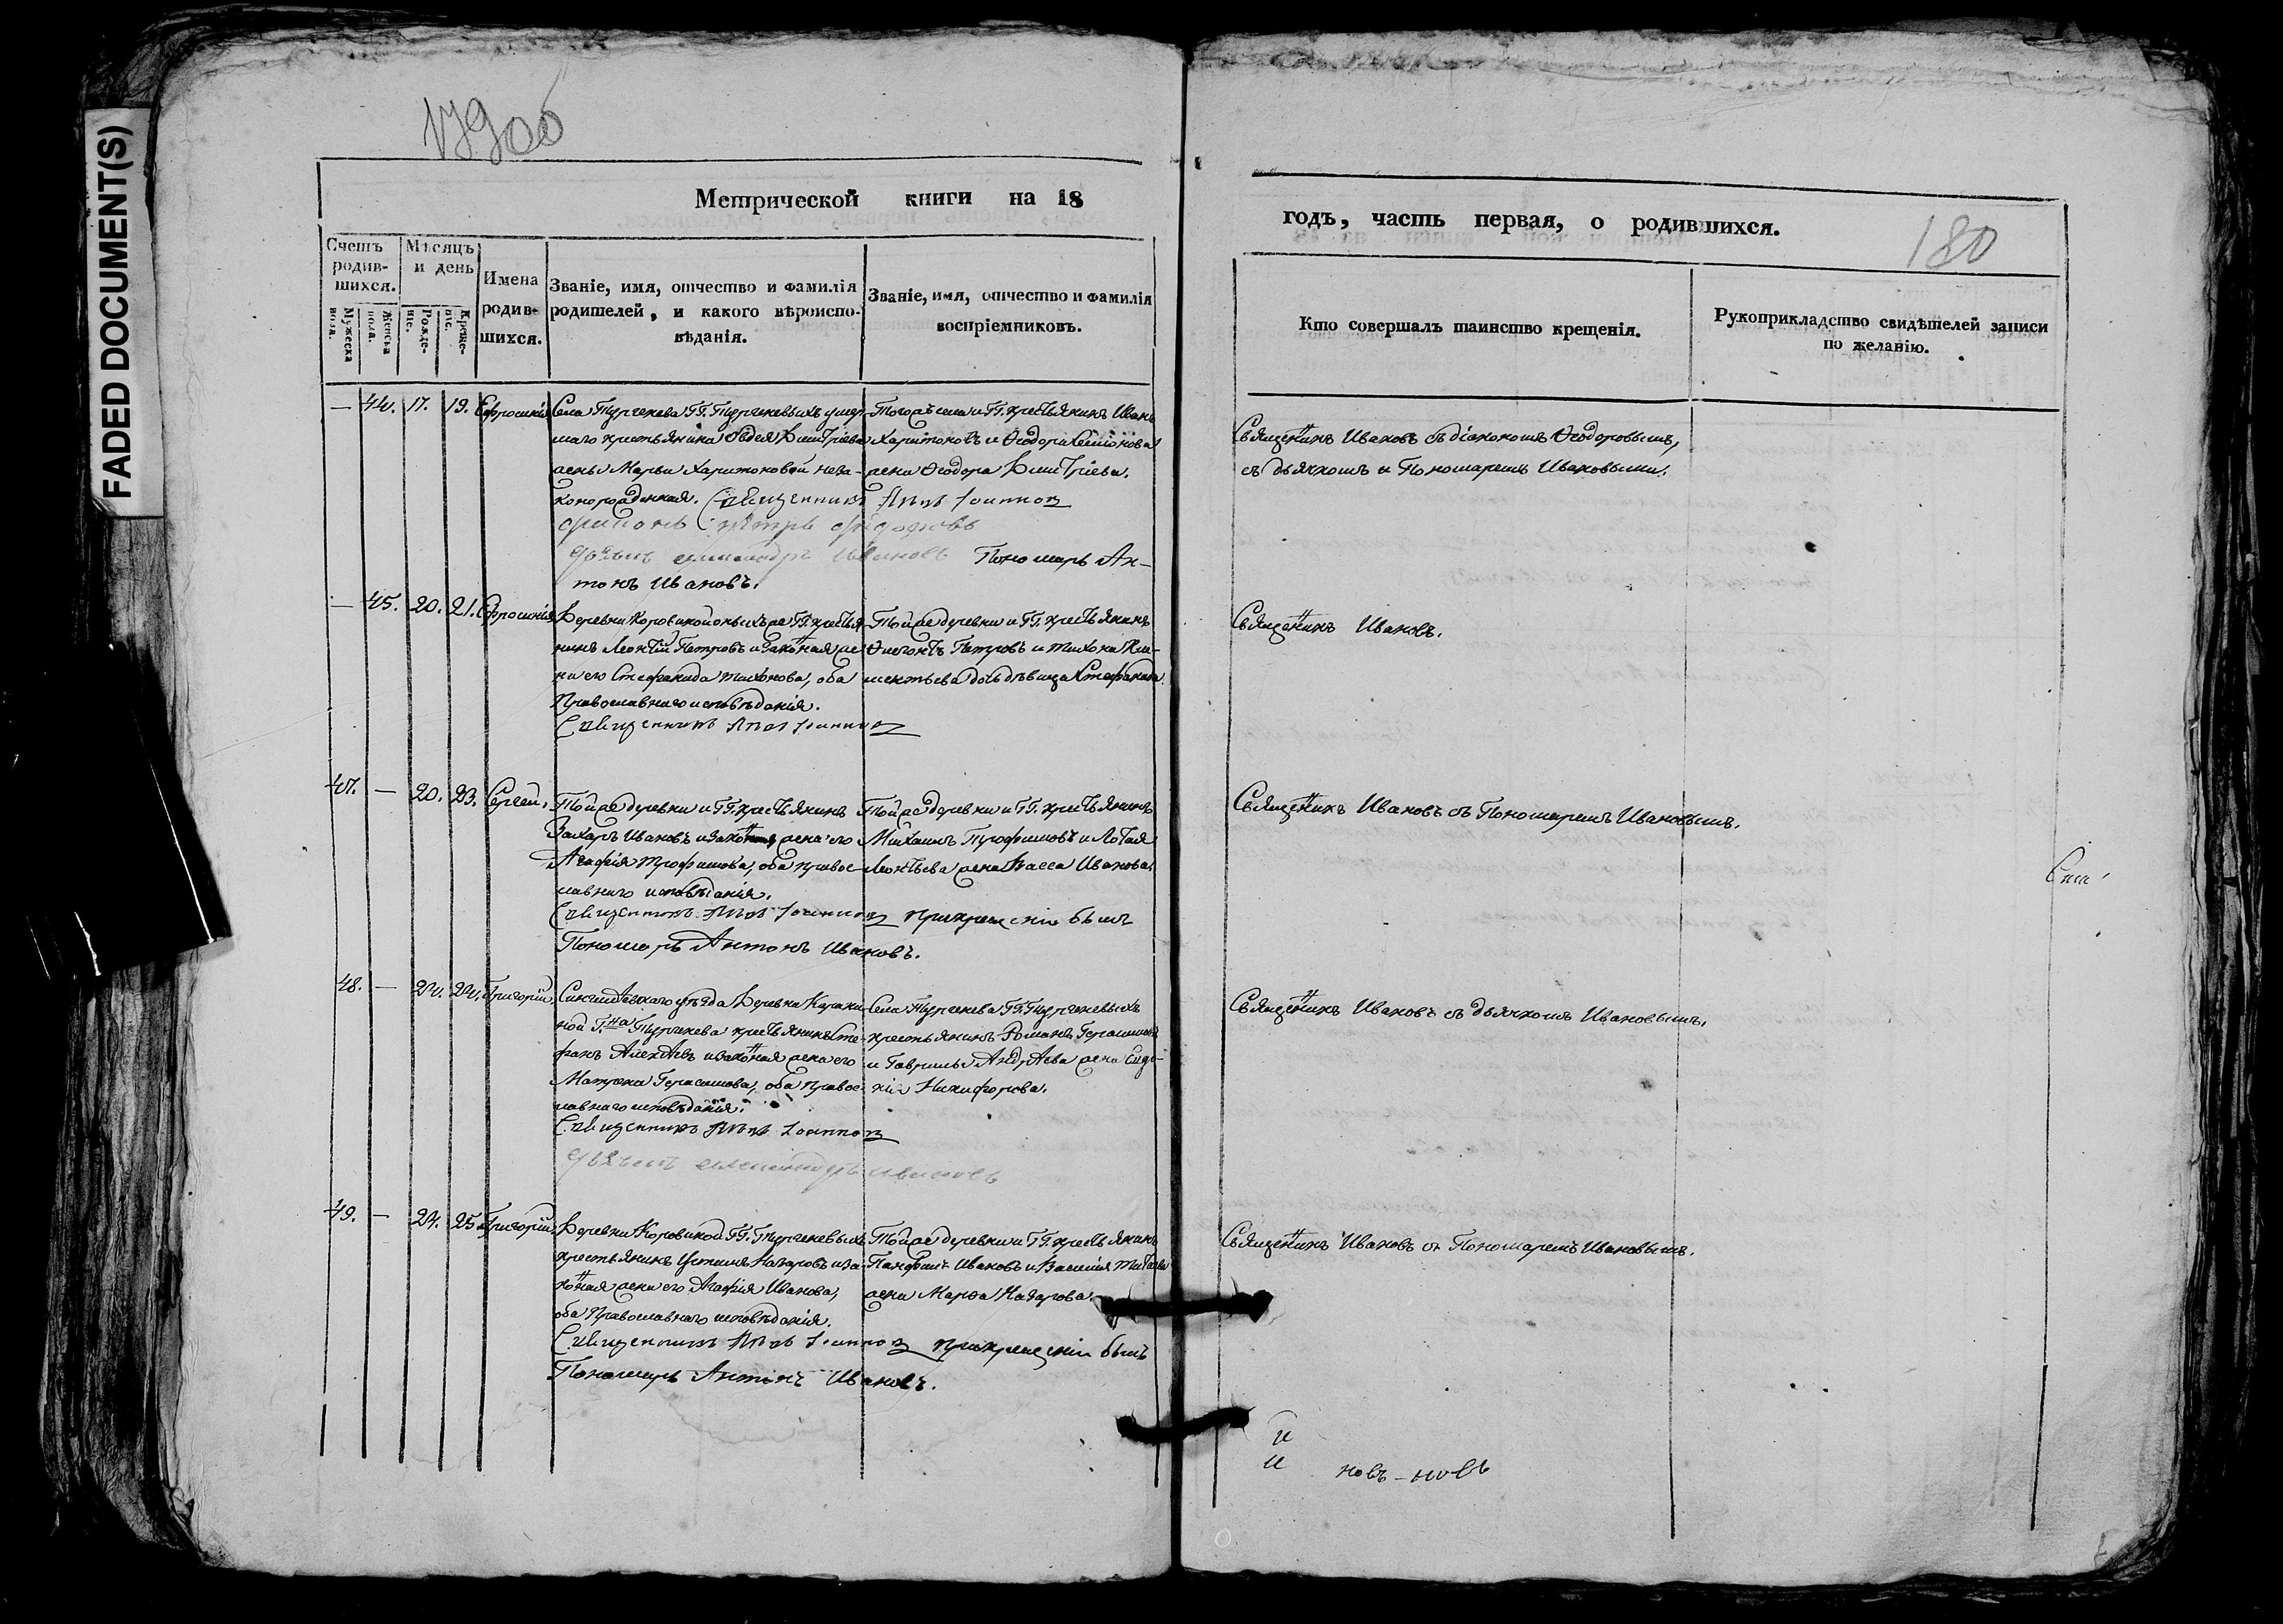 FADED DOCUMENT(S)
179об
Метрической книги на 18
Счетъ родив-шихся.
Мужеска пола.
Женска пола.
Мѣсяцъ и день
Рожде-ніе.
Креще-ніе.
Имена родив-шихся.
Званіе, имя, отчество и фамилія
родителей, и какого вѣроиспо-
вѣданія.
Званіе, имя, отчество и фамилія
воспріемниковъ.
годъ, часть первая, о родившихся.
180
Кто совершалъ таинство крещенія.
Рукоприкладство свидѣтелей записи
по желанію.
— 44. 17. 19. Ефросинія
Села Тургенева ГГ. Тургеневыхъ умер-
шаго крестьянина Авдея Дмитріева
жены Марьи Харитоновой неза-
коннорожденная. Священникъ Іоаннов
Діаконъ Петръ Федоровъ
Дьячекъ Александръ Ивановъ Пономарь Ан-
тонъ Ивановъ.
Тогожъ села и ГГ. крестьянинъ Иванъ
Харитоновъ и Ѳеодора Семіонова
жена Ѳеодора Дмитріева.
Священникъ Ивановъ съ діакономъ Ѳеодоровымъ,
съ дьячкомъ и Пономаремъ Ивановыми.
— 45. 20. 21. Ефросинія
Деревни Коровиной оныхъ же ГГ. крестья-
нинъ Леонтій Петровъ и законная же-
на его Стефанида Тихонова, оба
Православнаго исповѣданія.
Священникъ Іоаннов
Той же деревни и ГГ. крестьянинъ
Петровъ и Тихона Кли-
ментьева дочь дѣвица Стефанида.
Священникъ Ивановъ.
47. — 20. 23. Сергей.
Той же деревни и ГГ. крестьянинъ
Захаръ Ивановъ и законная жена его
Агафія Трофимова, оба правос-
лавнаго исповѣданія.
Священникъ Іоаннов при крещеніи былъ
Пономарь Антонъ Ивановъ.
Той же деревни и ГГ. крестьянинъ
Михаилъ Трофимовъ и
Леонтьева жена Васса Иванова.
Священникъ Ивановъ съ Пономаремъ Ивановымъ.
48. — 24. 24. Григорій.
уѣзда Деревни
ной Г.на Тургенева крестьянинъ Сте-
фанъ Алексѣевъ и законная жена его
Матрена Герасимова, оба правос-
лавнаго исповѣданія.
Священникъ Іоаннов
Дьячекъ Александръ Ивановъ
Села Тургенева ГГ. Тургеневыхъ
крестьянинъ Романъ Герасимовъ
и Гаврилы Андрѣева жена Евдо-
кія Никифорова.
Священникъ Ивановъ съ дьячкомъ Ивановымъ.
49. — 24. 25. Григорій.
Деревни Коровиной ГГ. Тургеневыхъ
крестьянинъ Устинъ Назаровъ и за-
конная жена его Агафія Иванова,
оба Православнаго исповѣданія.
Священникъ Іоаннов при крещеніи былъ
Пономарь Антонъ Ивановъ.
Той же деревни и ГГ. крестьянинъ
Панфилъ Ивановъ и Василія
жена Марѳа Назарова.
Священникъ Ивановъ съ Пономаремъ Ивановымъ.
и
и новъ-новъ